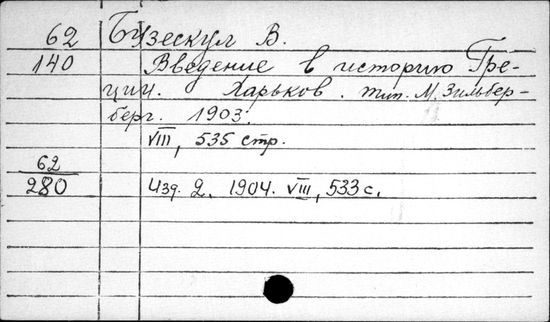 62 Бузескул В.
140 Введение в историю Гре-
ции. Харьков. тип. М. Зильбер-
берг. 1903.
VIII, 535 стр.
62
280 Изд. 2. 1904. VIII, 533 с.